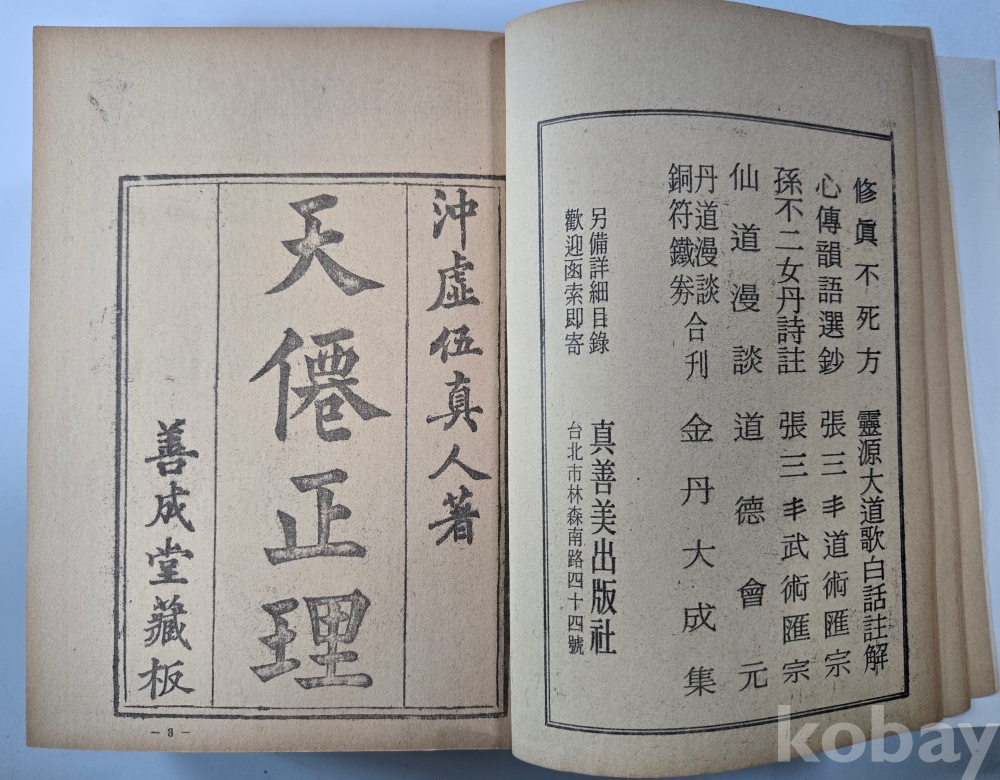 修眞不死方
靈源大道歌白話註解
心傳韻語選鈔
張三丰道術匯宗
孫不二女丹詩註
張三丰武術匯宗
仙道漫談
道德會元
丹道漫談
銅符鐵券
合刊
金丹大成集
另備詳細目錄
歡迎函索即寄
真善美出版社
台北市林森南路四十四號
沖虛伍真人著
天僊正理
善成堂藏板
— 3 —
kobay